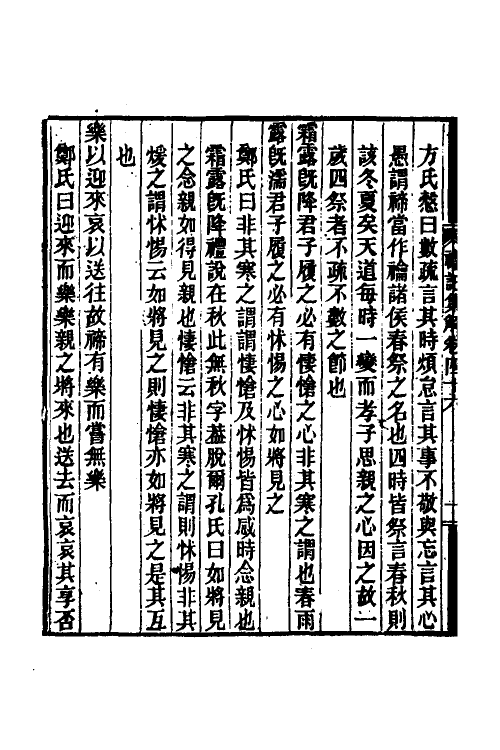 方氏慤曰數疏言其時煩怠言其事不敬與忘言其心
愚謂禘當作禴諸侯春祭之名也四時皆祭言春秋則
該冬夏矣天道每時一變而孝子思親之心因之故一
歲四祭者不疏不數之節也
霜露旣降君子履之必有悽愴之心非其寒之謂也春雨
露旣濡君子履之必有怵惕之心如將見之
鄭氏曰非其寒之謂謂悽愴及怵惕皆爲感時念親也
霜露旣降禮說在秋此無秋字蓋脫爾孔氏曰如將見
之念親如得見親也悽愴云非其寒之謂則怵惕非其
煖之謂怵惕云如將見之則悽愴亦如將見之是其互
也
樂以迎來哀以送往故禘有樂而嘗無樂
鄭氏曰迎來而樂樂親之將來也送去而哀哀其享否